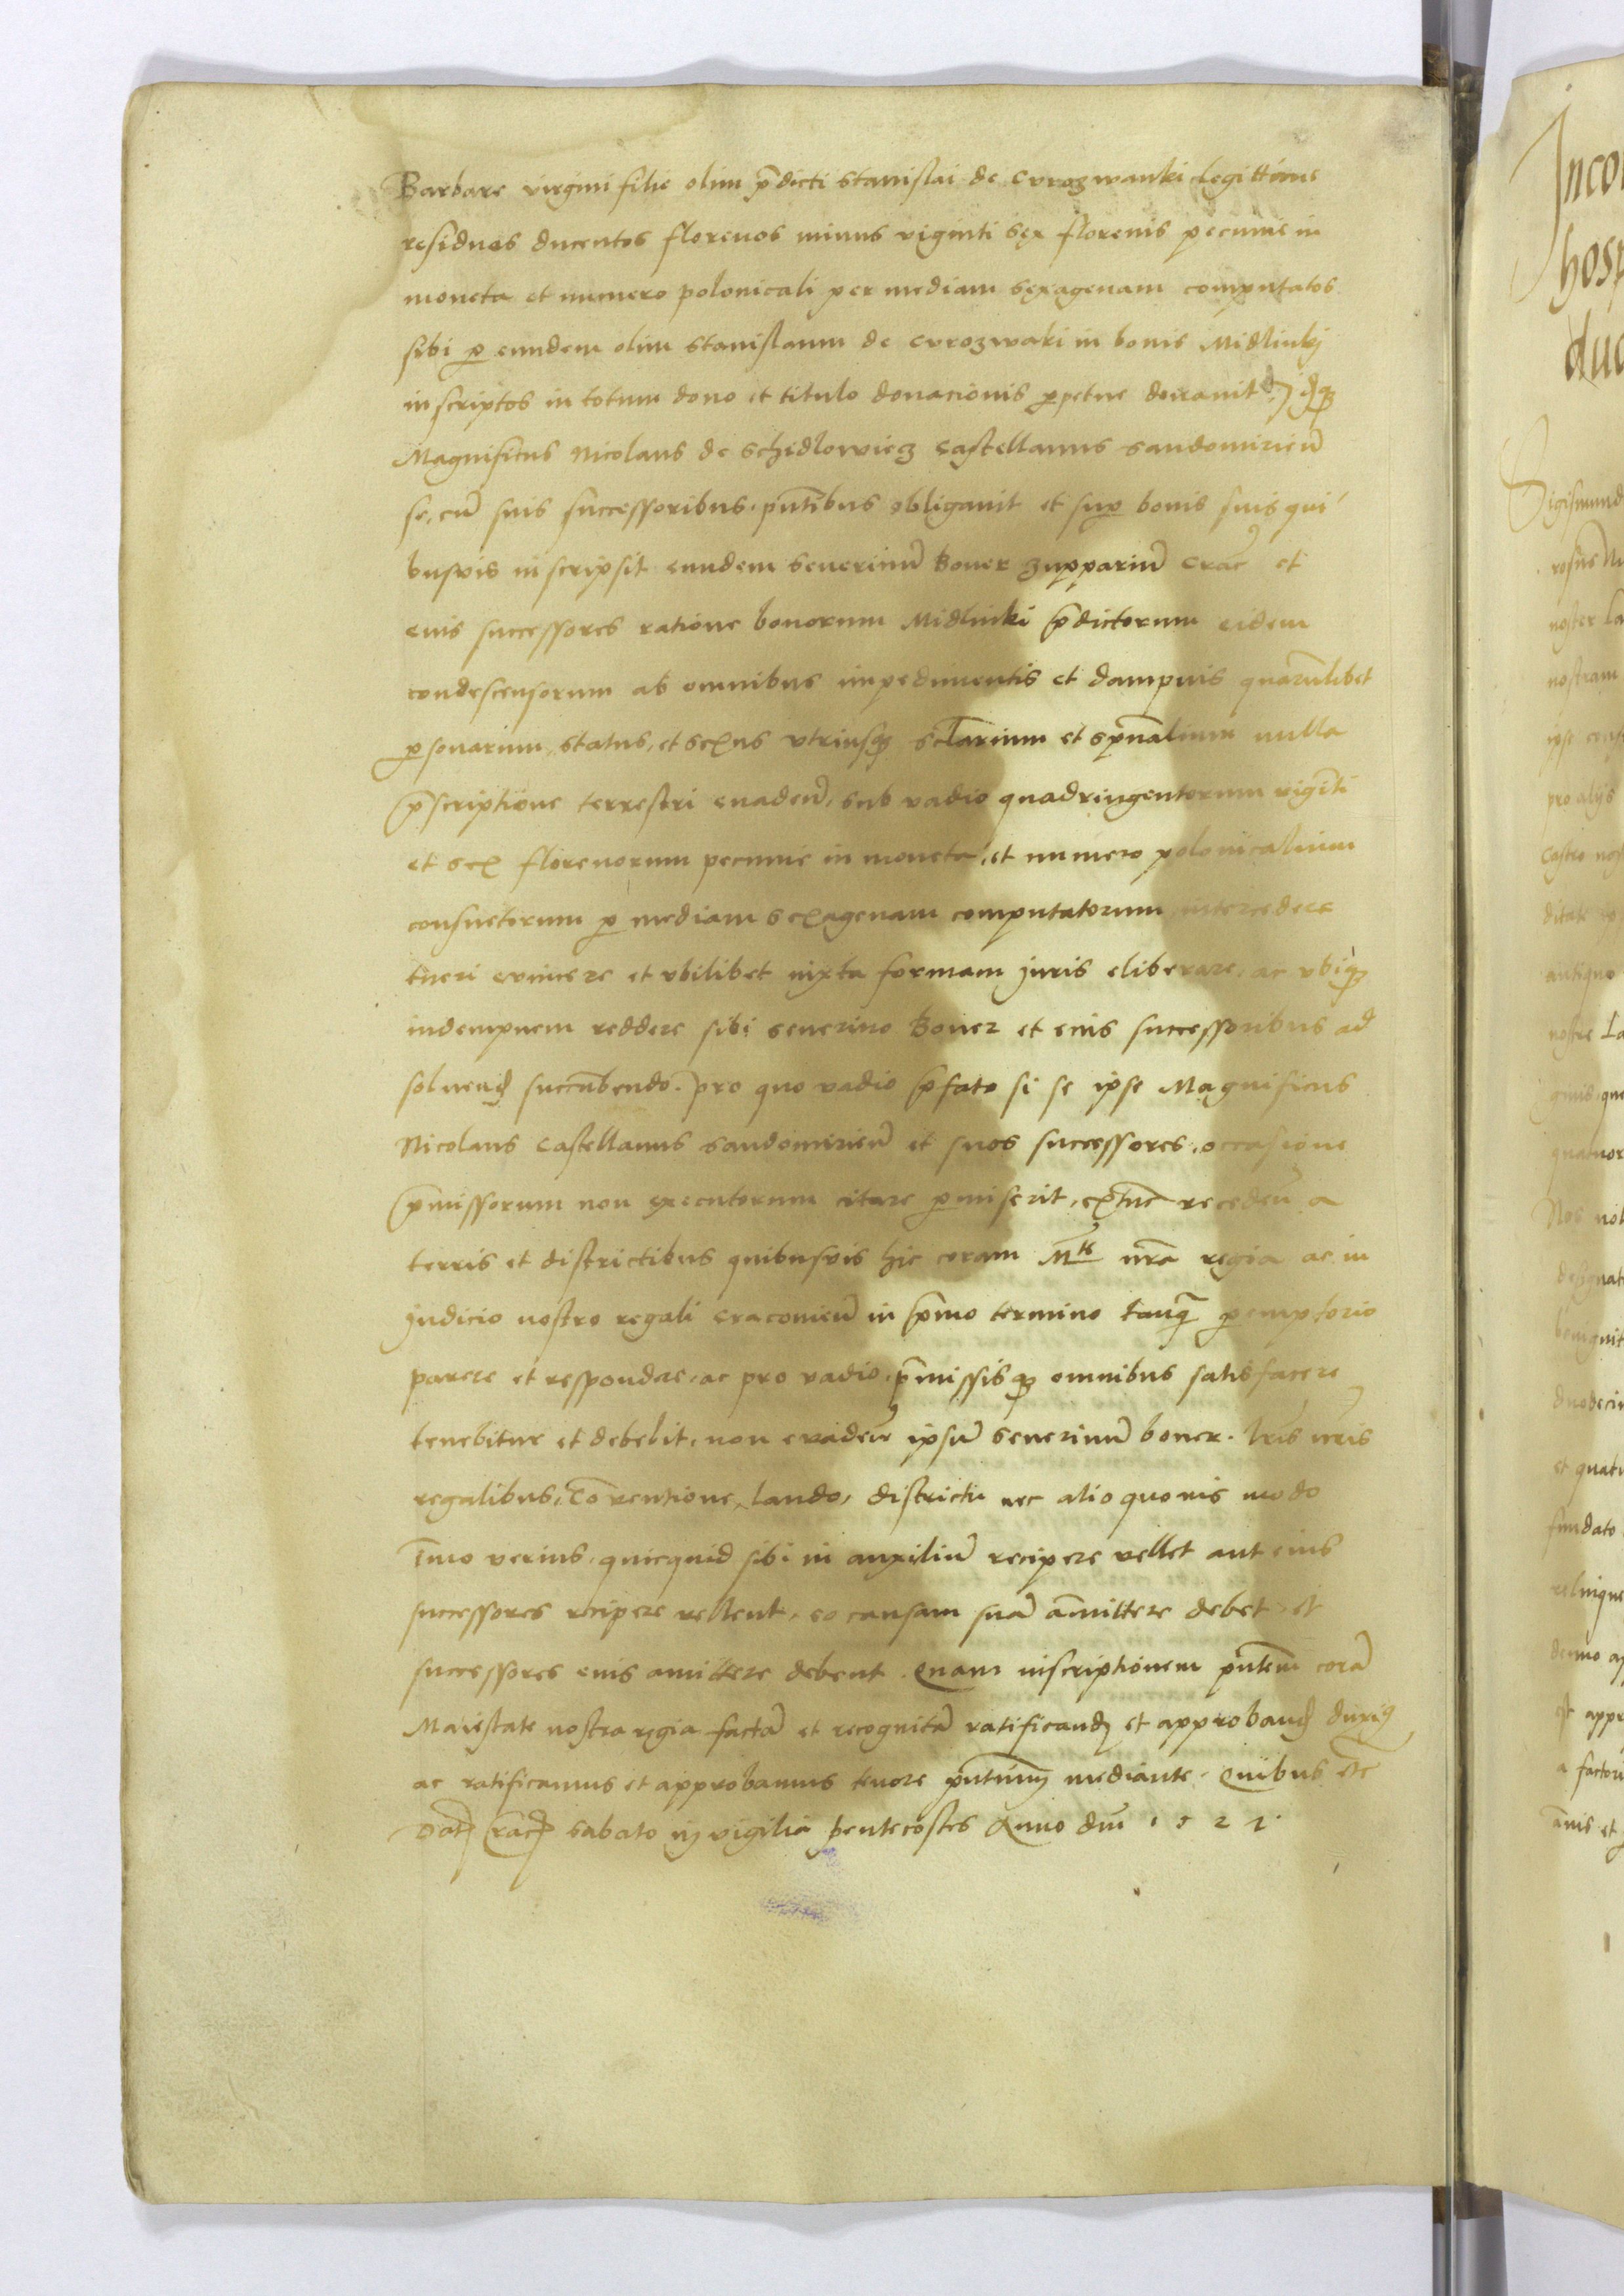 Barbare virgini filie olim p̄dicti Stanislai de Curozwanki legittime
residuos ducentos florenos minus viginti sex florenis pecunie in
moneta et numero polonicali per mediam sexagenam computatos
sibi ꝑ eundem olim Stanislaum de Curozwaki in bonis Midlinkj
inscriptos in totum dono et titulo donacionis ꝑpetue donauit
Magnificus Nicolaus de Schidlowiecz Castellanus Sandomirien̄
se, cū suis successoribus, pn̄tibus obligauit et suꝑ bonis suis qui
busvis inscripsit eundem Seuerinū Boner zuppariū Crac̄ et
euis successores ratione bonorum Midlinki p̄dictorum eidem
condescensorum ab omnibus impedimentis et dampnis quarūlibet
ꝑsonarum, status, et sexus vtriusqꝫ sclarium et sp̄nalium nulla
p̄scriptione terrestri euadeñ, sub vadio quadringentorum viginti
et sex florenorum pecunie in moneta, et numero polonicalium
consuetorum ꝑ mediam sexagenam computatorum intercedere
tueri euincere et vbilibet iuxta formam juris eliberare, ac vbiqꝫ
indempnem reddere sibi Seuerino Boner et eius successoribus ad
soluend succūbendo. pro quo vadio p̄fato si se ipse Magnificus
Nicolaus Castellanus Sandomirien̄ et suos successores, occasione
p̄missorum non executorum citare ꝑmiserit, extūc recedeñ a
terris et districtibus quibusvis hic coram Mte nr̄a regia ac in
judicio nostro regali Cracouien̄ in p̄mo termino tanq̄ ꝑemptorio
parere et respondere, ac pro vadio, p̄missisqꝫ omnibus satisfacere
tenebitur et debebit, non euadeñ ipsū Seuerinū boner. lr̄is nr̄is
regalibus, cōventione, laudo, districtu nec alio quouis modo
īmo verius, quicquid sibi in auxiliū recipere vellet aut eius
successores recipere vellent, eo causam suā amittere debet, et
successores euis amittere debent. Quam inscriptionem pn̄tem corā
Maiestate nostra regia factā et recognitā ratificand et approband duxim⁹
ac ratificamus et approbamus tenore pn̄tium mediante. Quibus etc
Dat Crac Sabato in vigilia pentecostes Anno dnī 1521.